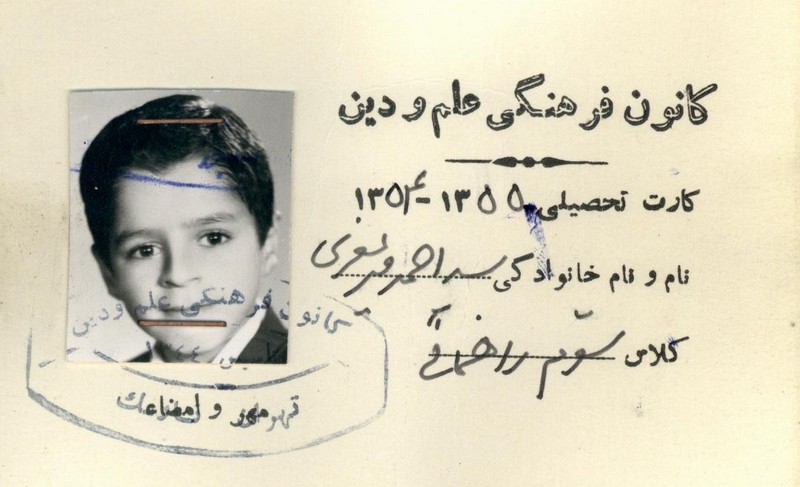 کانون فرهنگی علم و دین
کارت تحصیلی ۱۳۵۵-۱۳۵۴
نام و نام خانوادگی سید احمد
کلاس سوم راهنمائی
کانون فرهنگی علم ودین
تاسیس ۴۴
مهر و امضاء